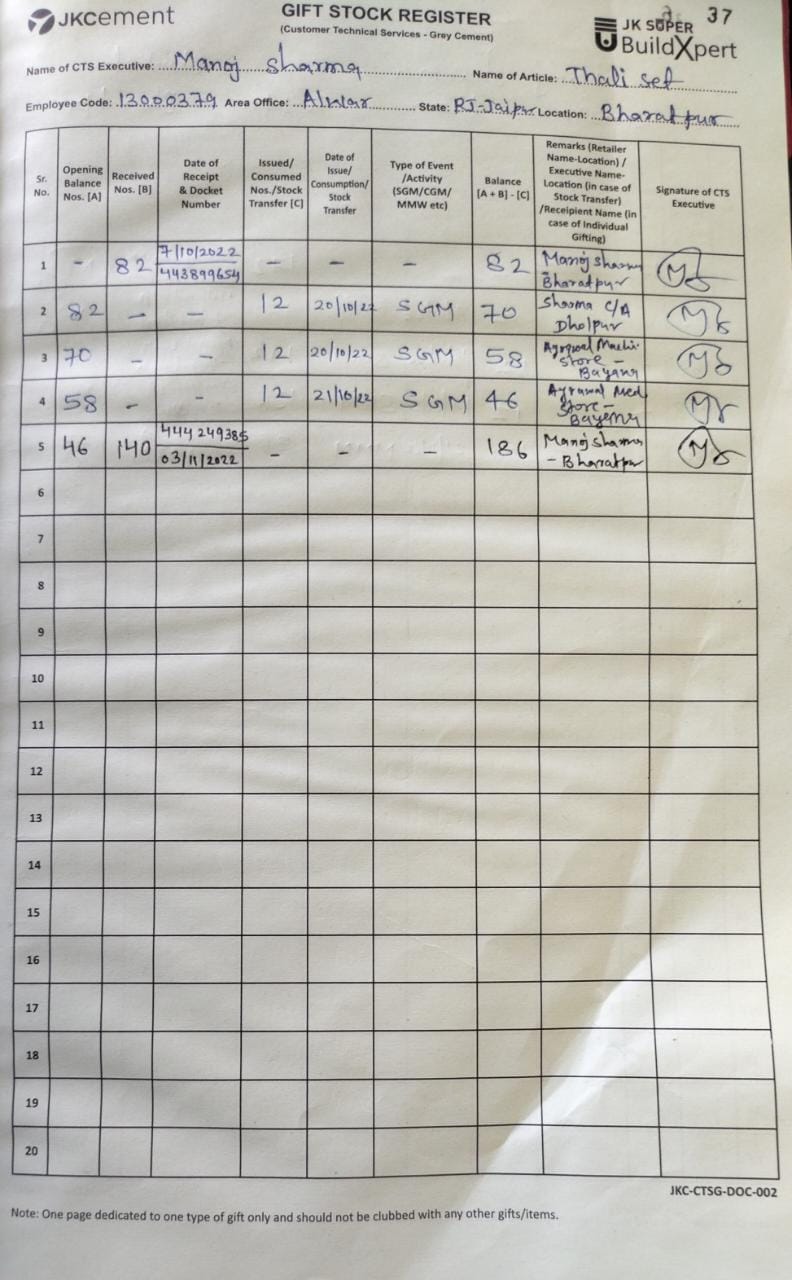 JKCement
GIFT STOCK REGISTER
(Customer Technical Services - Grey Cement)
37
JK SUPER
BuildXpert
Name of CTS Executive: Manoj Sharma Name of Article: Thali set
Employee Code: 13000379 Area Office: Alwar State: RJ-Jaipur Location: Bharatpur
Sr. No.
Opening Balance Nos. [A]
Received Nos. [B]
Date of Receipt & Docket Number
Issued/ Consumed Nos./Stock Transfer [C]
Date of Issue/ Consumption/ Stock Transfer
Type of Event /Activity (SGM/CGM/ MMW etc)
Balance [A + B] - [C]
Remarks (Retailer Name-Location) / Executive Name-Location (in case of Stock Transfer) /Receipient Name (in case of Individual Gifting)
Signature of CTS Executive
1 - 82 7/10/2022 443899654 - - - 82 Manoj Sharma Bharatpur
2 82 - - 12 20/10/22 SGM 70 Sharma C/A Dholpur
3 70 - - 12 20/10/22 SGM 58 Store -
4 58 - - 12 21/10/22 SGM 46 Agrawal Med Store-
5 46 140 444249385 03/11/2022 - - - 186 Manoj Sharma - Bharatpur
6
7
8
9
10
11
12
13
14
15
16
17
18
19
20
JKC-CTSG-DOC-002
Note: One page dedicated to one type of gift only and should not be clubbed with any other gifts/items.